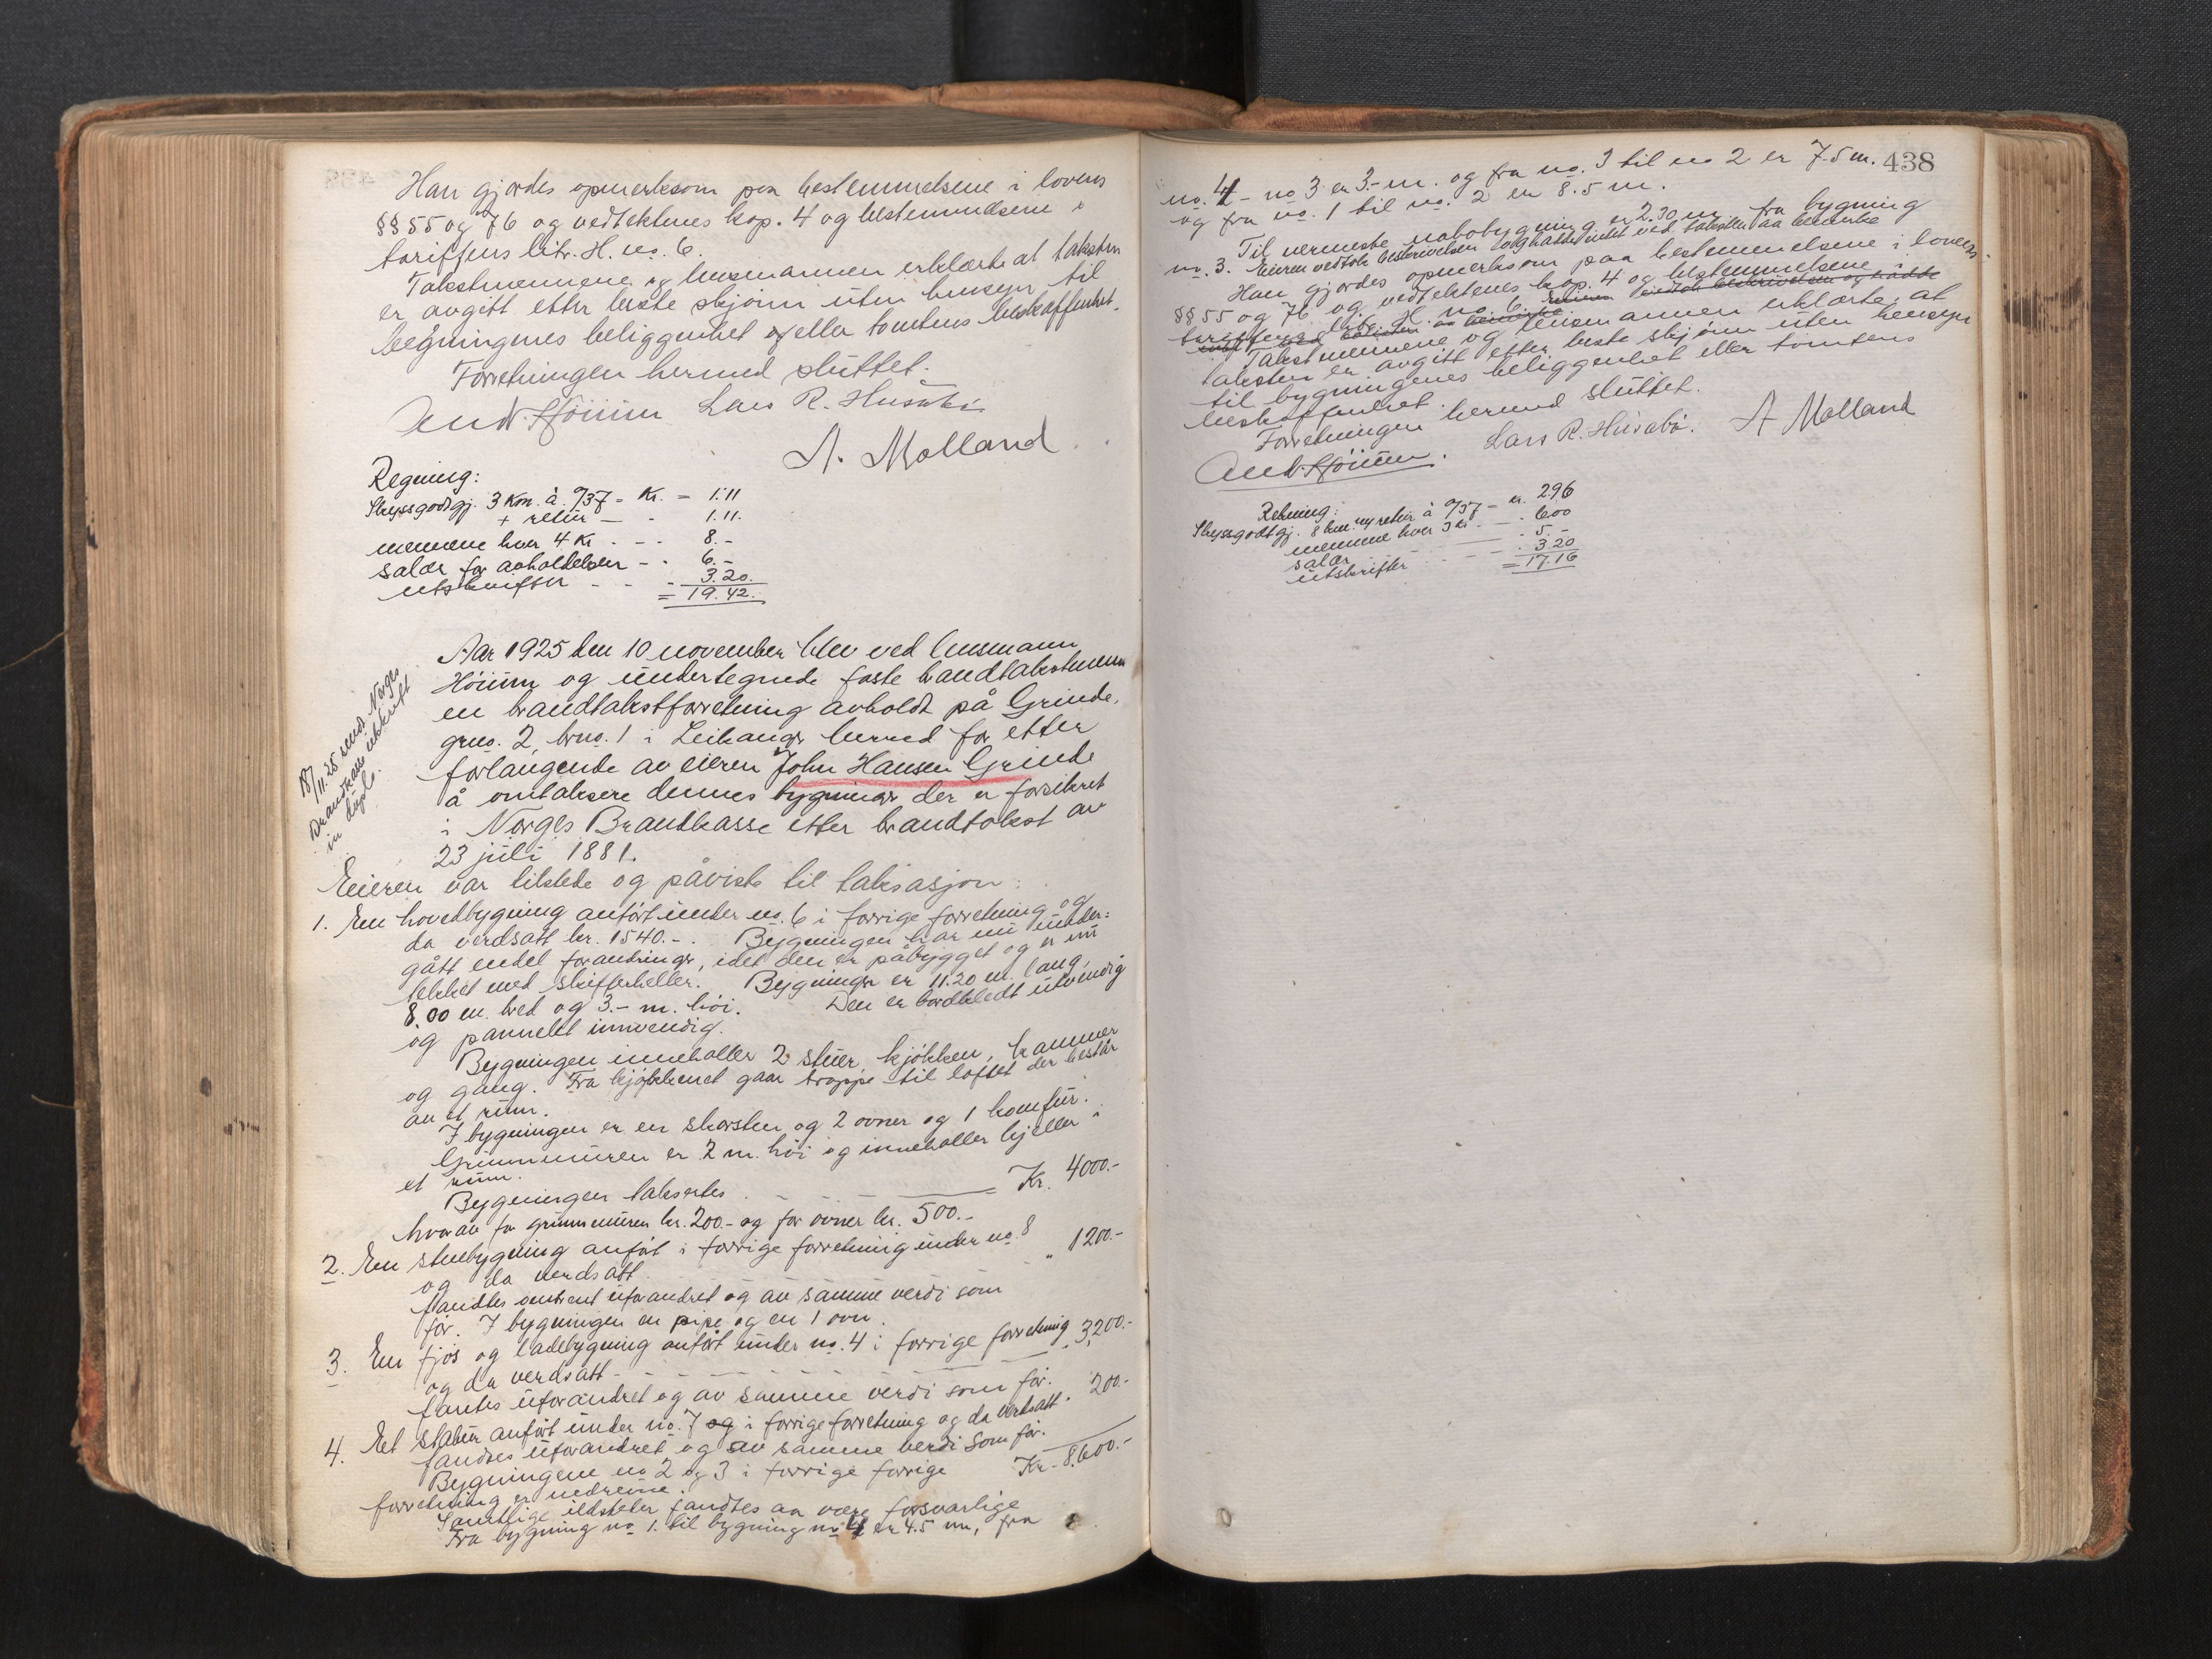 Han gjordes opmerksom paa bestemmelsene i lovens
§§ 55 og 76 og vedtektenes kap. 4 og bestemmelsene i
tariffens litr. H. no. 6.
Takstmennene og lensmannen erklærte at taksten
er avgitt etter beste skjønn uten hensyn til
bygningenes beliggenhet eller tomtens beskaffenhet.
Forretningen hermed sluttet.
And. Høium Lars R. Husabø
A. Molland
Regning:
Skyssgodtgj. 3 Km. à 0/37 = Kr. = 1.11
+ retur — - 1.11.
mennene hver 4 Kr - - - 8.-
salær for avholdelsen - - 6.-
utskrifter - - - 3.20.
= 19.42.
18/11.25 send. Norges
Brandkasse utskrift
in dupl.
Aar 1925 den 10 november blev ved lensmann
Høium og undertegnede faste brandtakstmenn
en brandtakstforretning avholdt på Grinde,
grno. 2, brno. 1 i Leikanger herred for etter
forlangende av eieren John Hansen Grinde
å omtaksere dennes bygninger der er forsikret
i Norges Brandkasse etter brandtakst av
23 juli 1881.
Eieren var tilstede og påviste til taksasjon:
1. En hovedbygning anført under no. 6 i forrige forretning og
da verdsatt kr. 1540.-. Bygningen har nu under-
gått endel forandringer, idet den er påbygget og er nu
tekket med skifferheller. Bygningen er 11.20 m. lang,
8.00 m. bred og 3.- m. høi. Den er bordkledt utvendig
og pannelt innvendig.
Bygningen inneholler 2 stuer, kjøkken, kammer
og gang. Fra kjøkkenet gaar trappe til loftet der består
av et rum.
I bygningen er en skorsten og 2 ovner og 1 komfur.
Grunnmuren er 2 m. høi og inneholler kjeller i
et rum.
Bygningen takseres - - - Kr. 4000.-
hvorav for grunnmuren kr. 200.- og for ovner kr. 500.-
2. En stuebygning anført i forrige forretning under no. 8
og da verdsatt - - - " 1200.-
fandtes omtrent uforandret og av samme verdi som
før. I bygningen en pipe og en 1 ovn.
3. En fjøs og ladebygning anført under no. 4 i forrige forretning
og da verdsatt - - - - 3,200.-
fantes uforandret og av samme verdi som før.
4. Et stabur anført under no. 7 og i forrige forretning og da verdsatt - 200.-
fandtes uforandret og av samme verdi som før.
Kr. 8.600.-
Bygningene no 2 og 3 i forrige forrige
forretning er nedrevne.
Samtlige ildsteder fandtes aa være forsvarlige
Fra bygning no 1. til bygning no 4 er 4.5 m, fra
438
no. 4 - no 3 er 3.- m. og fra no. 3 til no 2 er 7.5 m.
og fra no. 1 til no. 2 er 8.5 m.
Til nermeste nabobygning er 2.30 m fra bygning
no. 3. Eieren vedtok beskrivelsen og hadde intet ved taksten aa bemerke
Han gjordes opmerksom paa bestemmelsene i lovens
§§ 55 og 76 og vedtektenes kap. 4 og bestemmelsene i
tariffens litr. H. no. 6. Eieren vedtok beskrivelsen og hadde
intet ved taksten aa bemerke
Takstmennene og lensmannen erklærte at
taksten er avgitt etter beste skjønn uten hensyn
til bygningenes beliggenhet eller tomtens
beskaffenhet.
Forretningen hermed sluttet.
And. Høium. Lars R. Husabø. A Molland
Rekning:
Skyssgodtgj. 8 km. m/ retur à 0/37 = kr. 2.96
mennene hver 3 kr - - 6.00
salær - 5.-
utskrifter - - - 3.20
= 17.16